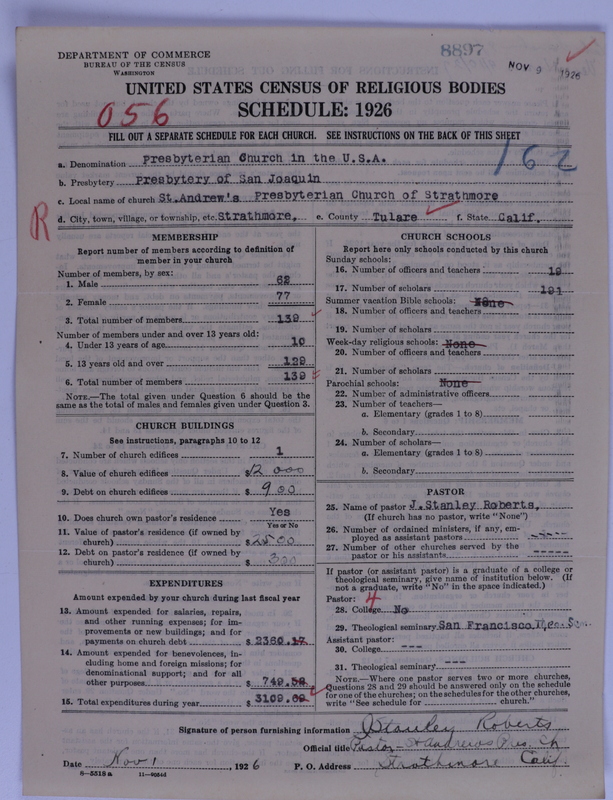 DEPARTMENT OF COMMERCE
BUREAU OF THE CENSUS
WASHINGTON
8897
NOV 9 1926
UNITED STATES CENSUS OF RELIGIOUS BODIES
SCHEDULE: 1926
056
FILL OUT A SEPARATE SCHEDULE FOR EACH CHURCH. SEE INSTRUCTIONS ON THE BACK OF THIS SHEET
162
a. Denomination Presbyterian Church in the U.S.A.
b. Presbytery Presbytery of San Joaquin
c. Local name of church St.Andrew's Presbyterian Church of Strathmore
R
d. City, town, village, or township, etc. Strathmore, e. County Tulare f. State Calif.
MEMBERSHIP
Report number of members according to definition of
member in your church
Number of members, by sex:
1. Male 62
2. Female 77
3. Total number of members 139
Number of members under and over 13 years old:
4. Under 13 years of age 10
5. 13 years old and over 129
6. Total number of members 139
NOTE.—The total given under Question 6 should be the
same as the total of males and females given under Question 3.
CHURCH BUILDINGS
See instructions, paragraphs 10 to 12
7. Number of church edifices 1
8. Value of church edifices $12 000
9. Debt on church edifices $ 900
10. Does church own pastor's residence Yes
Yes or No
11. Value of pastor's residence (if owned by
church) $ 2500
12. Debt on pastor's residence (if owned by
church) $ 300
EXPENDITURES
Amount expended by your church during last fiscal year
13. Amount expended for salaries, repairs,
and other running expenses; for im-
provements or new buildings; and for
payments on church debt $ 2360.17
14. Amount expended for benevolences, in-
cluding home and foreign missions; for
denominational support; and for all
other purposes $ 749.52
15. Total expenditures during year $ 3109.69
CHURCH SCHOOLS
Report here only schools conducted by this church
Sunday schools:
16. Number of officers and teachers 19
17. Number of scholars 191
Summer vacation Bible schools: None
18. Number of officers and teachers
19. Number of scholars
Week-day religious schools: None
20. Number of officers and teachers
21. Number of scholars
Parochial schools: None
22. Number of administrative officers
23. Number of teachers—
a. Elementary (grades 1 to 8)
b. Secondary
24. Number of scholars—
a. Elementary (grades 1 to 8)
b. Secondary
PASTOR
25. Name of pastor J.Stanley Roberts,
(If church has no pastor, write "None")
26. Number of ordained ministers, if any, em-
ployed as assistant pastors -----
27. Number of other churches served by the
pastor or his assistants -----
If pastor (or assistant pastor) is a graduate of a college or
theological seminary, give name of institution below. (If
not a graduate, write "No" in the space indicated.)
Pastor: 4
28. College No
29. Theological seminary San Francisco
Assistant pastor:
30. College ---
31. Theological seminary ---
NOTE.—Where one pastor serves two or more churches,
Questions 28 and 29 should be answered only on the schedule
for one of the churches; on the schedules for the other churches,
write "See schedule for church."
Signature of person furnishing information J Stanley Roberts
Official title Pastor - St Andrews Pres. Ch
Date Nov 1, 1926 P. O. Address Strathmore Calif.
8—5518a 11—9054d